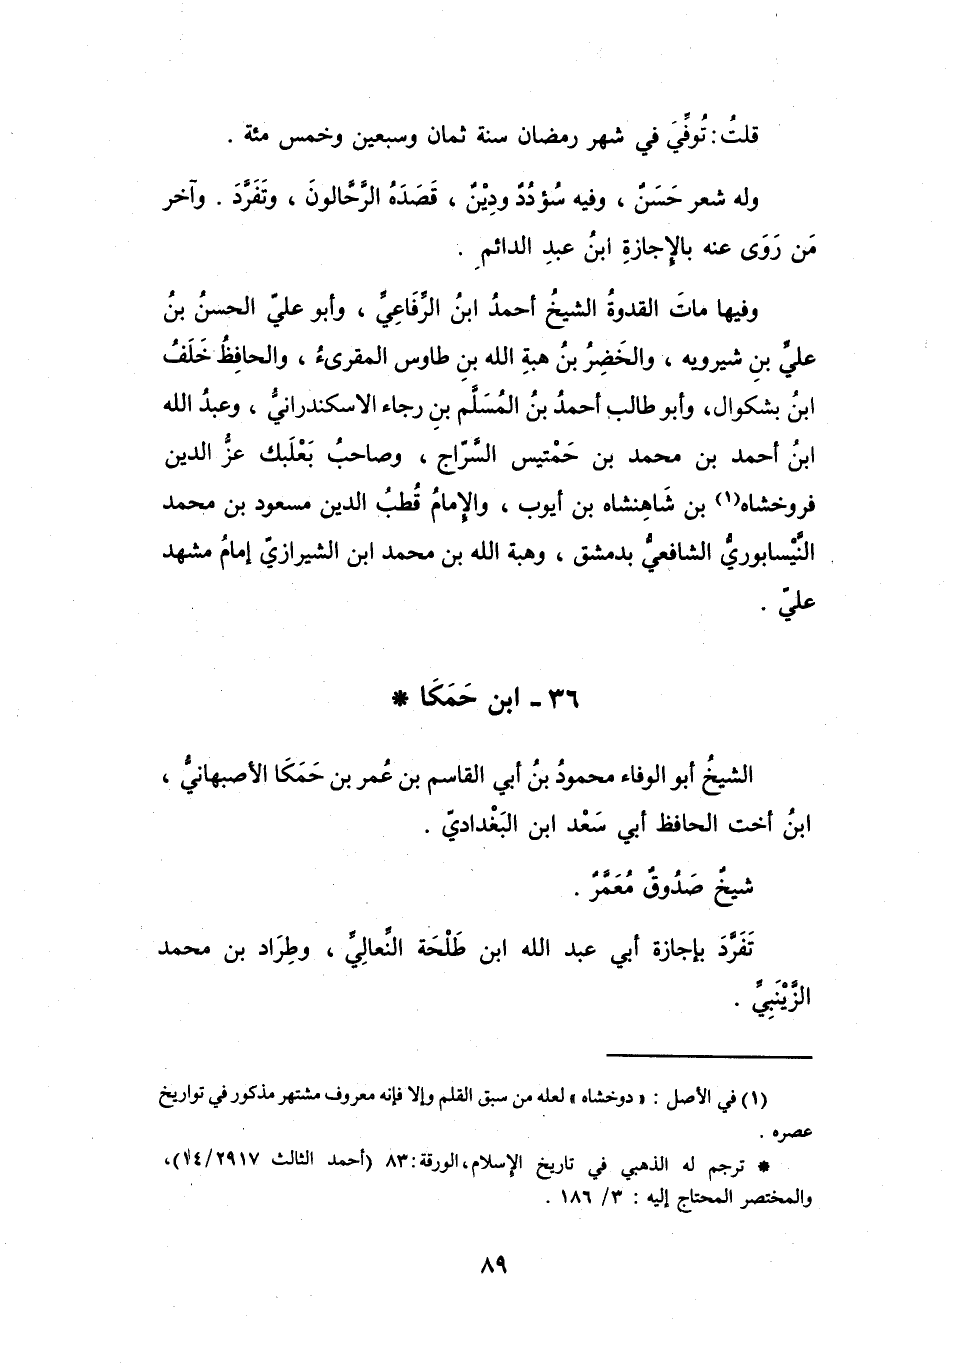 قلتُ: تُوفِّيَ في شهر رمضان سنة ثمان وسبعين وخمس مئة .
وله شعر حَسَنٌ ، وفيه سُؤدُدٌ ودِيْنٌ ، قَصَدَهُ الرَّحَّالونَ ، وتَفَرَّدَ . وآخر
مَن رَوَى عنه بالإِجازةِ ابنُ عبدِ الدائمِ .
وفيها ماتَ القدوةُ الشيخُ أحمدُ ابنُ الرِّفَاعِيِّ ، وأبو عليّ الحسنُ بنُ
عليِّ بنِ شيرويه ، والخَضِرُ بنُ هبةِ الله بنِ طاوس المقرىءُ ، والحافِظُ خَلَفُ
ابنُ بشكوال، وأبو طالب أحمدُ بنُ المُسَلَّم بنِ رجاء الاسكندرانيُّ ، وعبدُ الله
ابنُ أحمد بن محمد بن حَمْتيس السَّرّاج ، وصاحبُ بَعْلَبك عزُّ الدين
فروخشاه(١) بن شَاهِنشاه بن أيوب ، والإِمامُ قُطبُ الدين مسعود بن محمد
النَّيْسابوريُّ الشافعيُّ بدمشق ، وهبة الله بن محمد ابن الشيرازيّ إمامُ مشهد
عليّ .
٣٦ - ابن حَمَكَا *
الشيخُ أبو الوفاء محمودُ بنُ أبي القاسم بن عُمر بن حَمَكَا الأصبهانيُّ ،
ابنُ أخت الحافظ أبي سَعْد ابن البَغْداديّ .
شيخٌ صَدُوقٌ مُعَمَّرٌ .
تَفَرَّدَ بإجازة أبي عبد الله ابن طَلْحَة النَّعالِيِّ ، وطِرَاد بن محمد
الزَّيْنَبِيِّ .
(١) في الأصل : « دوخشاه » لعله من سبق القلم وإلا فإنه معروف مشتهر مذكور في تواريخ
عصره .
* ترجم له الذهبي في تاريخ الإسلام، الورقة: ٨٣ (أحمد الثالث ٢٩١٧/١٤)،
والمختصر المحتاج إليه : ٣/ ١٨٦ .
٨٩